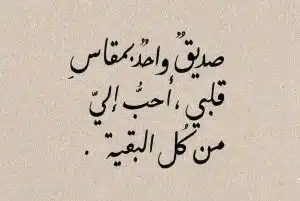 صديقٌ واحدٌ بمقاسِ
قلبي ، أحبُّ إليّ
من كُل البقية .